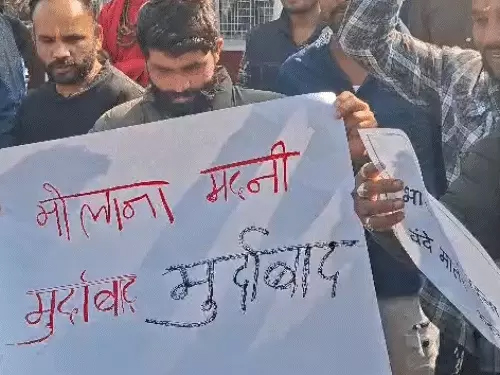 मौलाना मदनी
मुर्दाबाद मुर्दाबाद
भा
वंदे मात